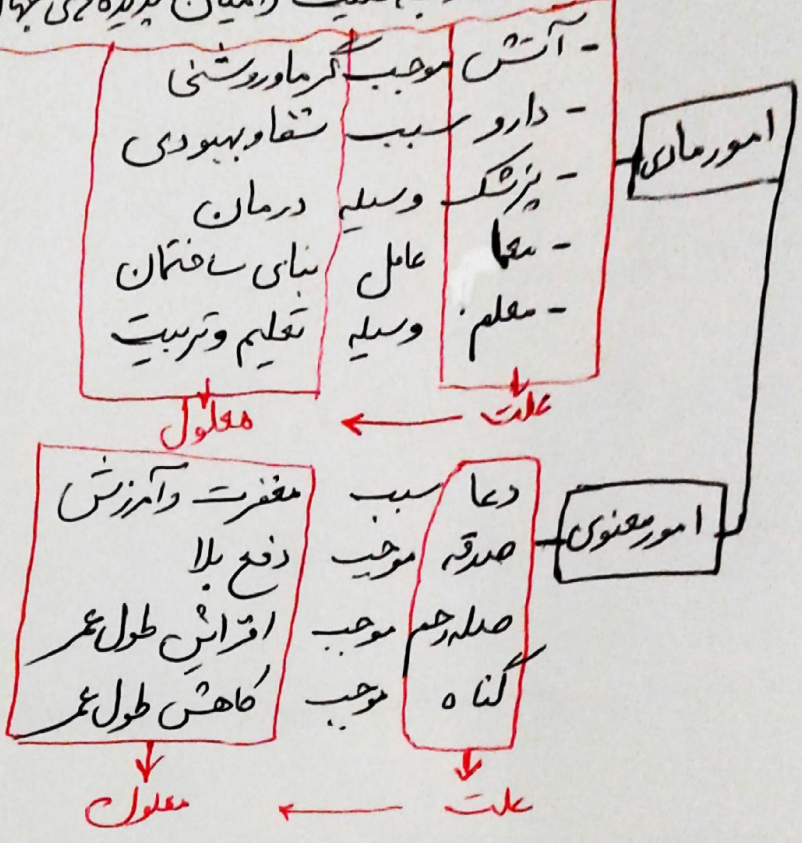 میان پدیده‌های
امور مادی
- آتش موجب گرما و روشنی
- دارو سبب شفا و بهبودی
- پزشک وسیله درمان
- معمار عامل بنای ساختمان
- معلم وسیله تعلیم و تربیت
علت ← معلول
امور معنوی
دعا سبب مغفرت و آمرزش
صدقه موجب دفع بلا
صله رحم موجب افزایش طول عمر
گناه موجب کاهش طول عمر
علت ← معلول